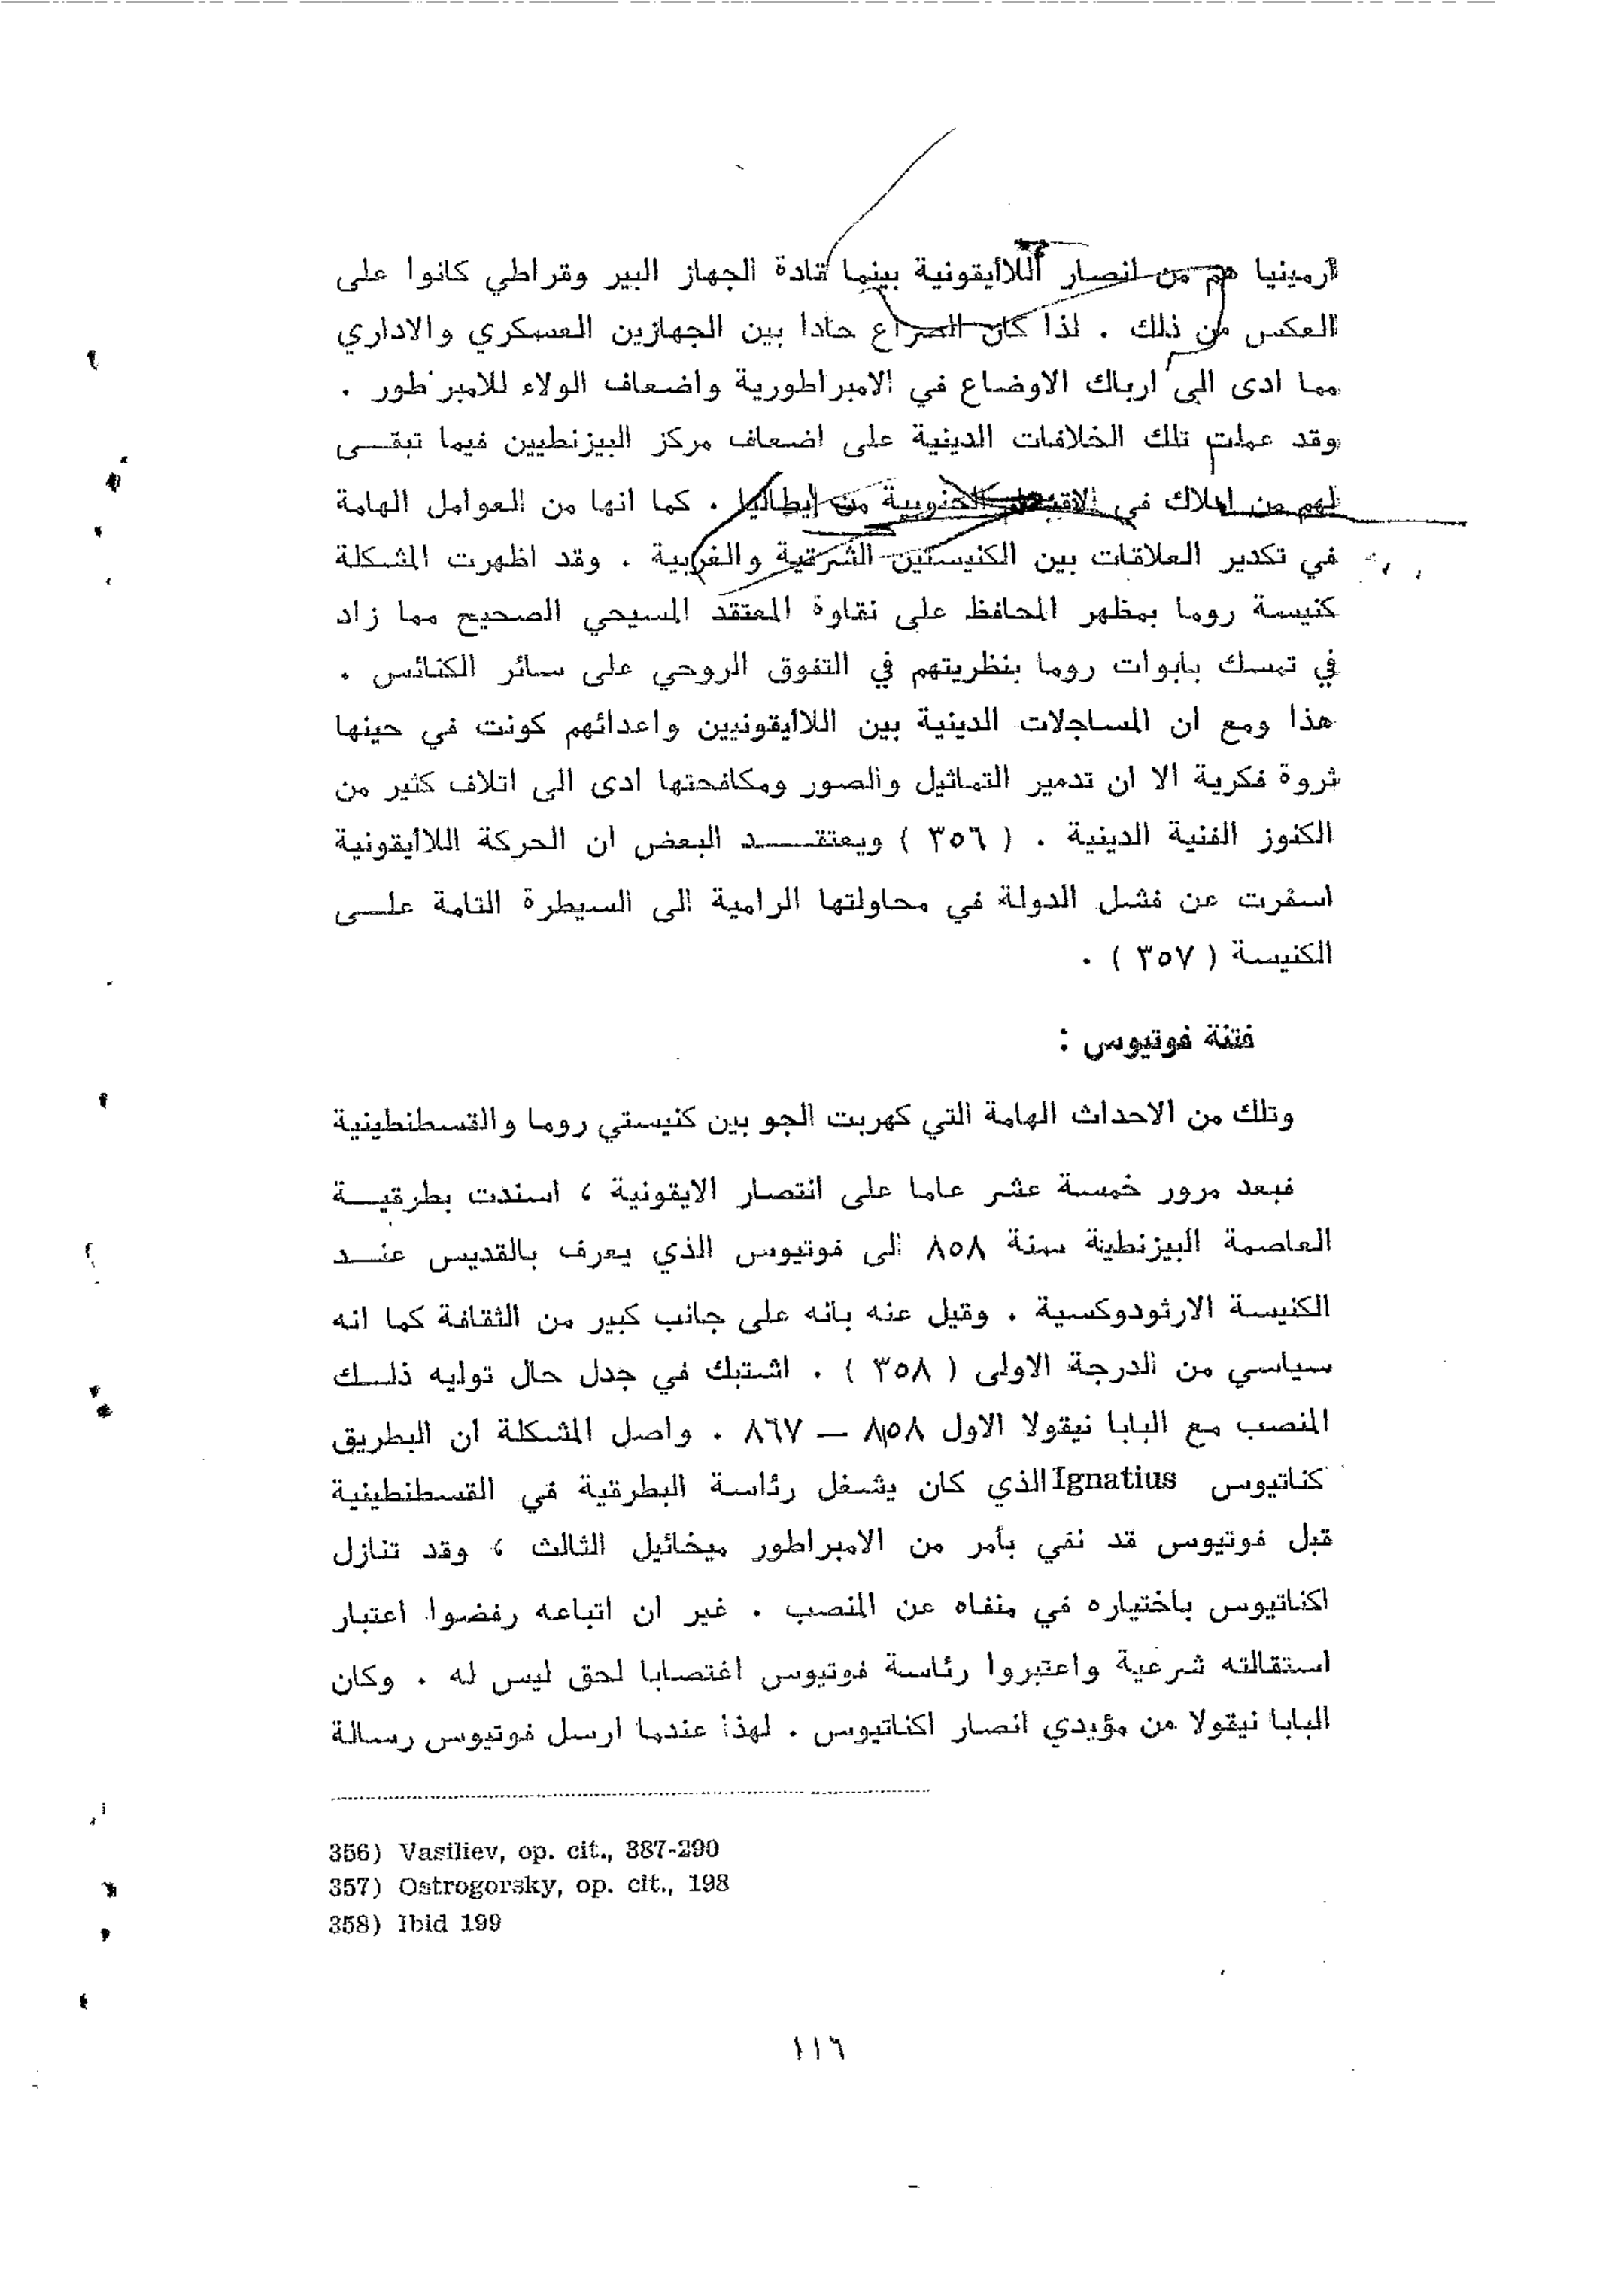 ارمينيا هم من انصار اللاأيقونية بينما قادة الجهاز البير وقراطي كانوا على
العكس من ذلك . لذا كان الصراع حادا بين الجهازين العسكري والاداري
مما ادى الى ارباك الاوضاع في الامبراطورية واضعاف الولاء للامبر طور .
وقد عملت تلك الخلافات الدينية على اضعاف مركز البيزنطيين فيما تبقــى
لهم من املاك في الجنوبية من إيطاليا . كما انها من العوامل الهامة
في تكدير العلاقات بين الكنيستين الشرقية والغربية . وقد اظهرت المشكلة
كنيسة روما بمظهر المحافظ على نقاوة المعتقد المسيحي الصحيح مما زاد
في تمسك بابوات روما بنظريتهم في التفوق الروحي على سائر الكنائس .
هذا ومع ان المساجلات الدينية بين اللاأيقونيين واعدائهم كونت في حينها
ثروة فكرية الا ان تدمير التماثيل والصور ومكافحتها ادى الى اتلاف كثير من
الكنوز الفنية الدينية . ( ٣٥٦ ) ويعتقــــد البعض ان الحركة اللاأيقونية
اسفرت عن فشل الدولة في محاولتها الرامية الى السيطرة التامة علــى
الكنيسة ( ٣٥٧ ) .
فتنة فوتيوس :
وتلك من الاحداث الهامة التي كهربت الجو بين كنيستي روما والقسطنطينية
فبعد مرور خمسة عشر عاما على انتصار الايقونية ، اسندت بطرقيــة
العاصمة البيزنطية سنة ٨٥٨ الى فوتيوس الذي يعرف بالقديس عنــد
الكنيسة الارثودوكسية . وقيل عنه بانه على جانب كبير من الثقافة كما انه
سياسي من الدرجة الاولى ( ٣٥٨ ) . اشتبك في جدل حال توليه ذلــك
المنصب مع البابا نيقولا الاول ٨٥٨ — ٨٦٧ . واصل المشكلة ان البطريق
كناتيوس Ignatius الذي كان يشغل رئاسة البطرقية في القسطنطينية
قبل فوتيوس قد نفي بأمر من الامبراطور ميخائيل الثالث ، وقد تنازل
اكناتيوس باختياره في منفاه عن المنصب . غير ان اتباعه رفضوا اعتبار
استقالته شرعية واعتبروا رئاسة فوتيوس اغتصابا لحق ليس له . وكان
البابا نيقولا من مؤيدي انصار اكناتيوس . لهذا عندما ارسل فوتيوس رسالة
356) Vasiliev, op. cit., 387-290
357) Ostrogorsky, op. cit., 198
358) Ibid 199
١١٦